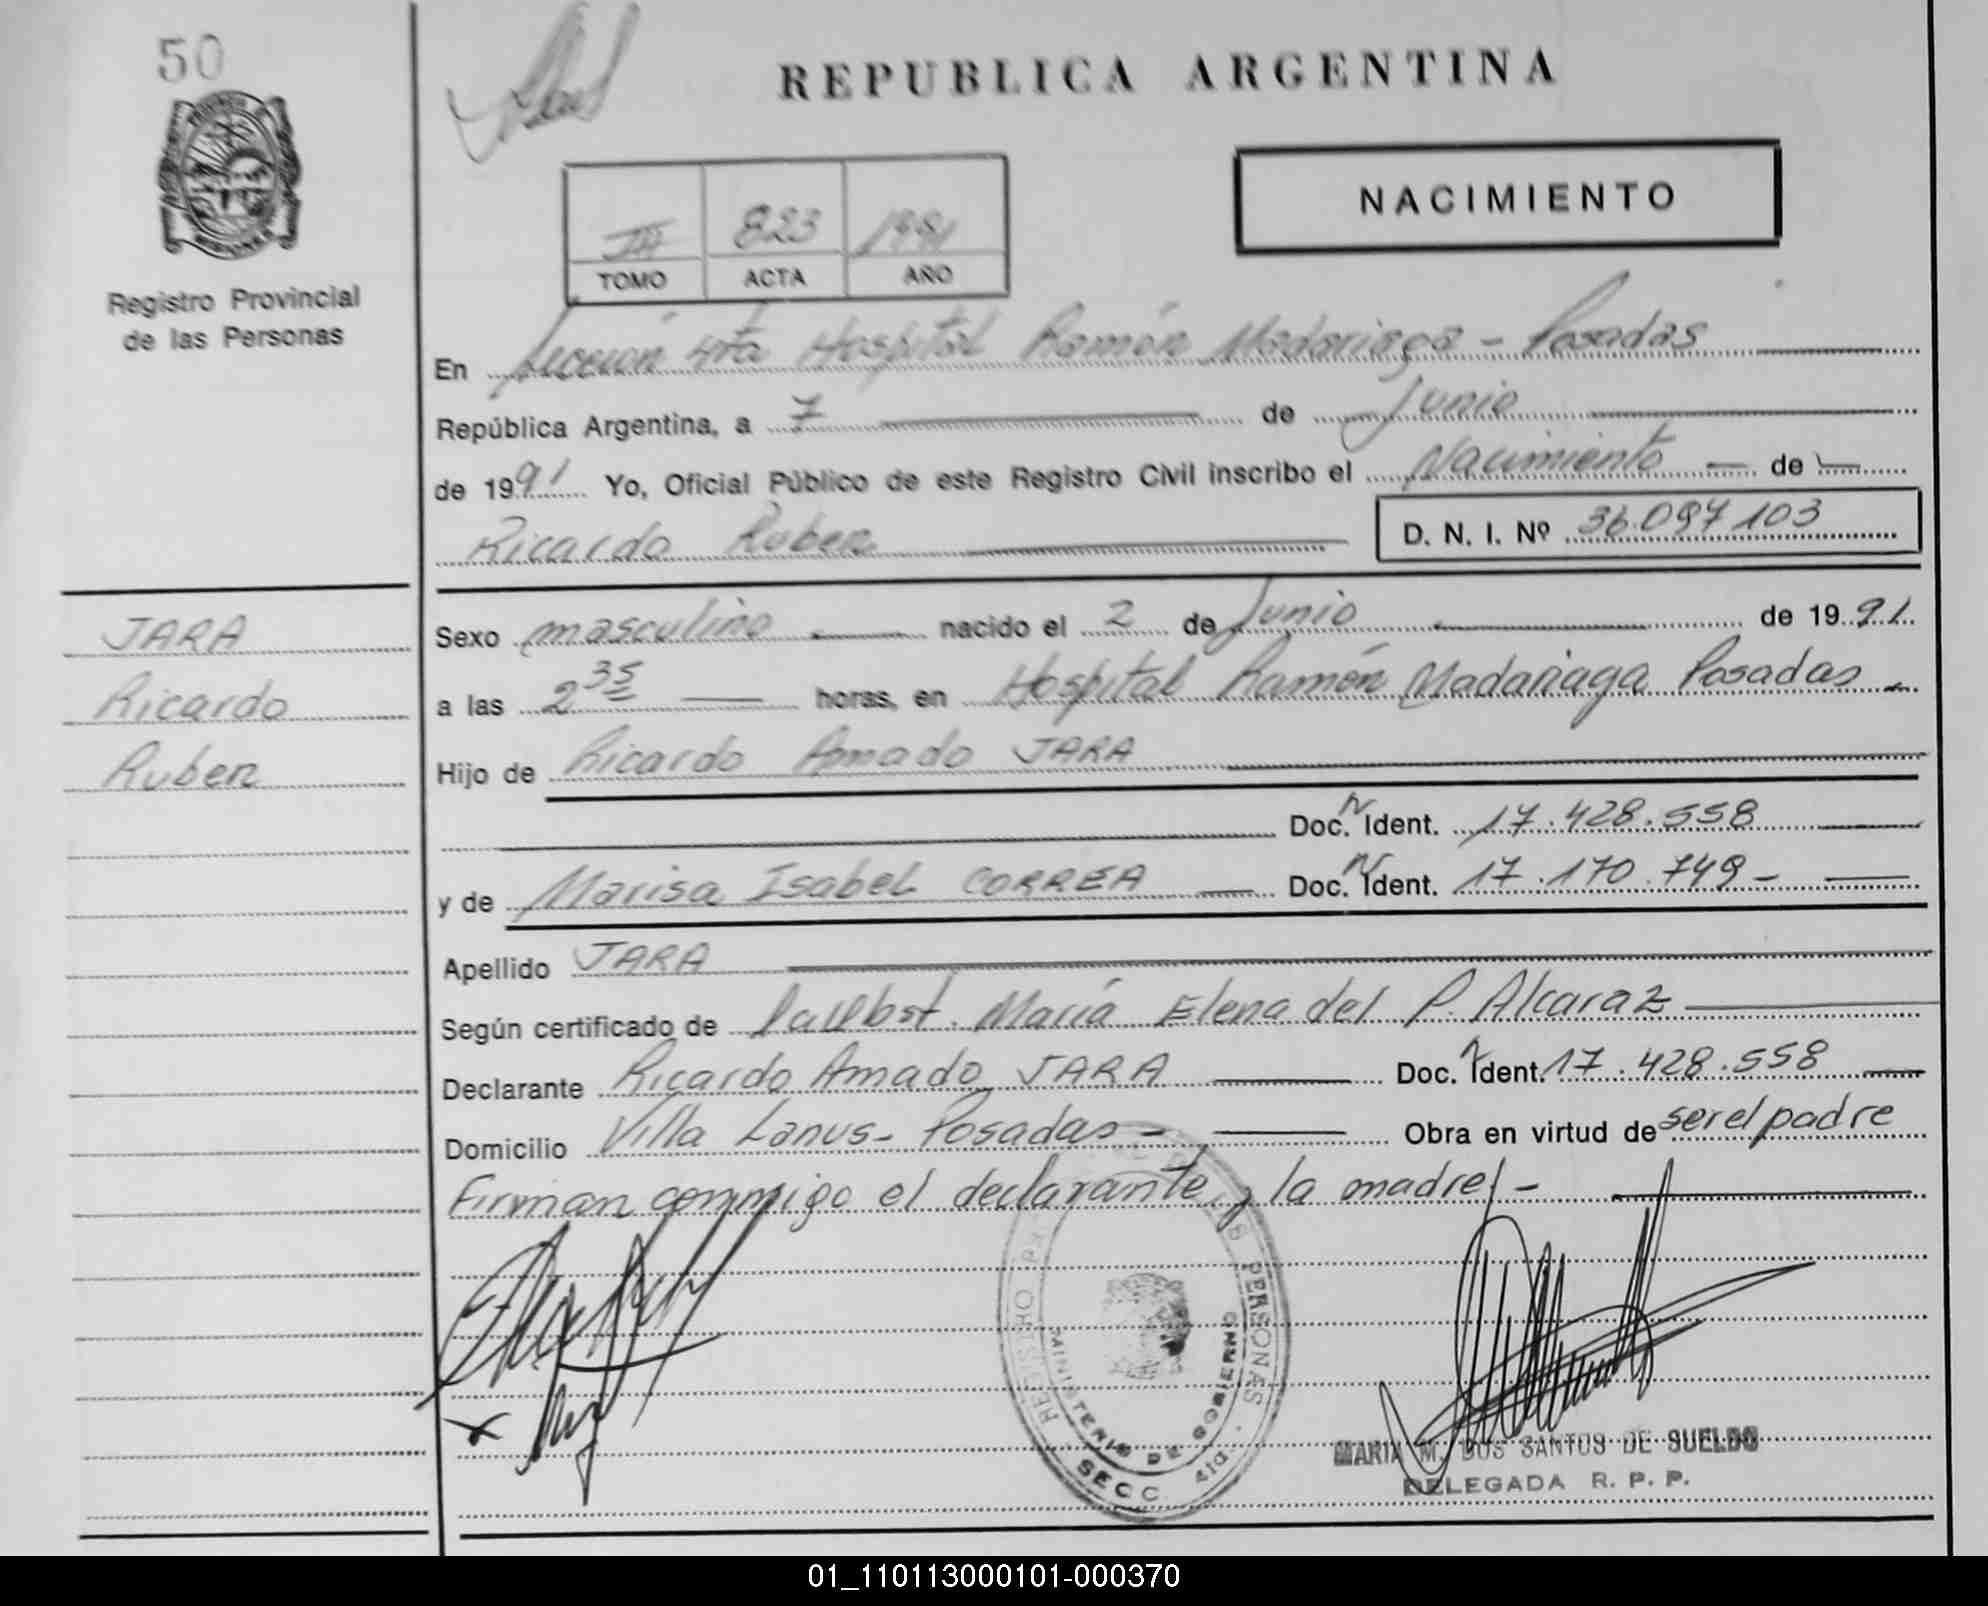 50
REPUBLICA ARGENTINA
NACIMIENTO
III 823 1991
TOMO ACTA AÑO
Registro Provincial
de las Personas
En Sección 4ta Hospital Ramón Madariaga - Posadas
República Argentina, a 7 de Junio
de 1991 Yo, Oficial Público de este Registro Civil inscribo el Nacimiento de
Ricardo Ruben D. N. I. Nº 36.097103
JARA
Ricardo
Ruben
Sexo masculino nacido el 2 de Junio de 1991.
a las 2 35 horas, en Hospital Ramón Madariaga Posadas
Hijo de Ricardo Amado JARA
Doc. N Ident. 17.428.558
y de Marisa Isabel CORREA Doc. N Ident. 17.170.749-
Apellido JARA
Según certificado de María Elena del P. Alcaraz
Declarante Ricardo Amado JARA Doc. N Ident. 17.428.558
Domicilio Villa Lanus- Posadas- Obra en virtud de ser el padre
Firman conmigo el declarante y la madre -
REGISTRO PERSONAS
MINISTERIO DE GOBIERNO
SECC. 4ta
MARIA M. DOS SANTOS DE SUELDO
DELEGADA R. P. P.
01_110113000101-000370